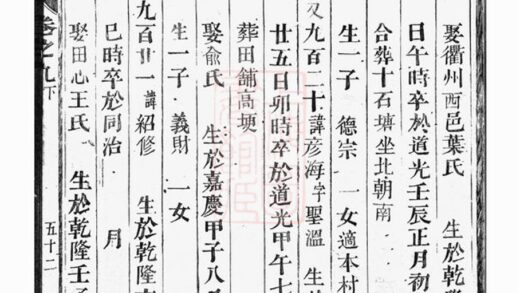 娶衢州西邑葉氏 生於乾
日午時卒於道光壬辰正月初
合葬十石塘坐北朝南
生一子 德宗 一女適本村
又九百二十諱彦海字聖溫 生
廿五日卯時卒於道光甲午七
葬田舖高埂
娶俞氏 生於嘉慶甲子八
生一子 義財 一女
九百廿一諱紹修 生於乾隆
巳時卒於同治 月
娶田心王氏 生於乾隆壬子
卷之九下 五十二